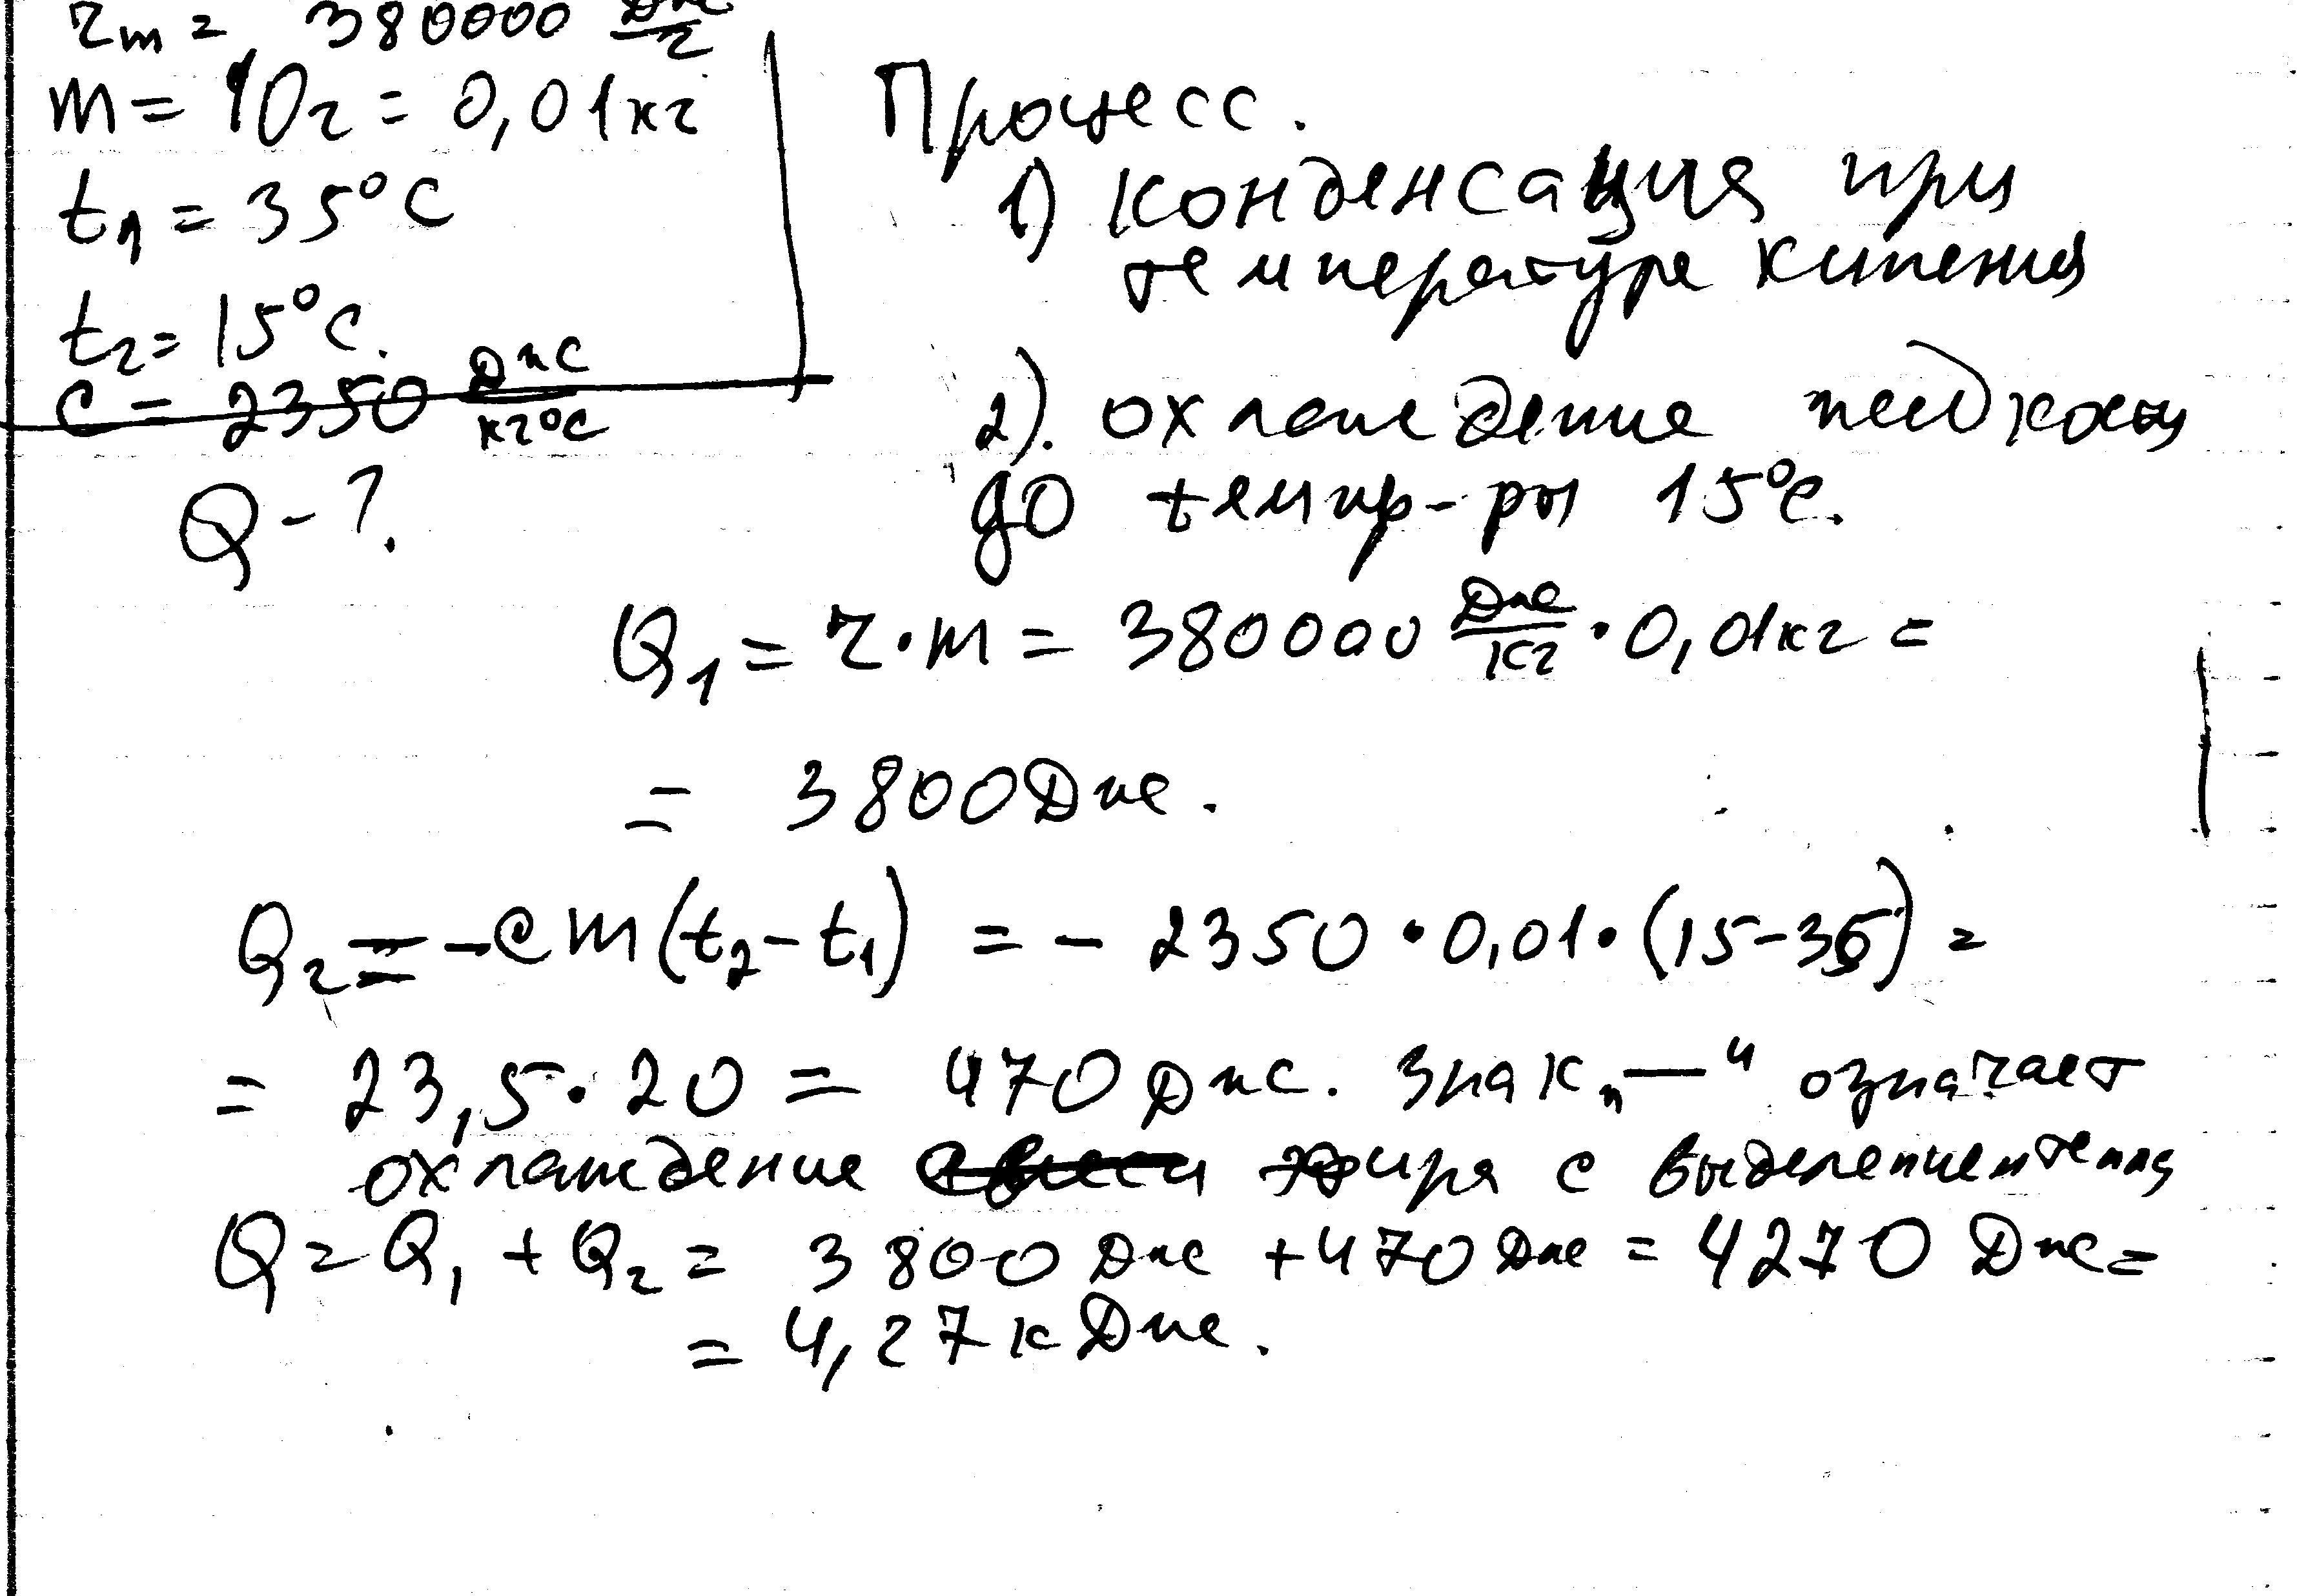 r_m = 380000 Дж/г
m = 10г = 0,01кг
t₁ = 35°C
t₂ = 15°C.
c = 2350 Дж/кг°C
Q - ?.
Процесс.
1) конденсация при
температуре кипения
2). охлаждение жидкости
до темпр-ры 15°C.
Q₁ = r·m = 380000 Дж/кг · 0,01кг =
= 3800 Дж.
Q₂ = -cm(t₂-t₁) = - 2350·0,01·(15-35) =
= 23,5·20 = 470 Дж. Знак „—“ означает
охлаждение эфира с выделением тепла
Q = Q₁ + Q₂ = 3800 Дж + 470 Дж = 4270 Дж =
= 4,27 кДж.